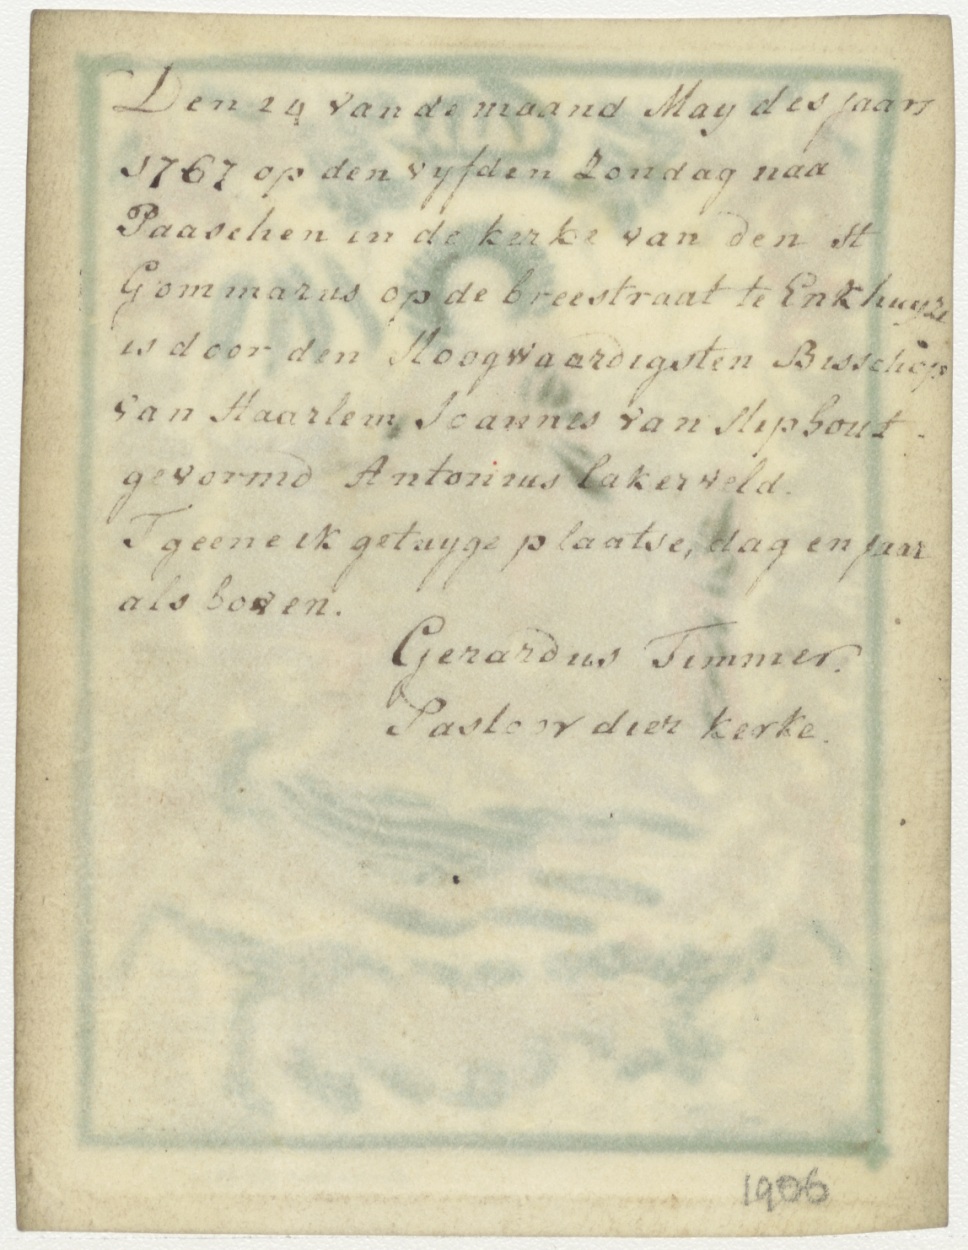 Den 24 van de maand May des jaars
1767 op den vyfden Zondag naa
Paaschen in de kerke van den st
Gommarus op de breestraat te Enkhuyze
is door den Hoogwaardigsten Bisschop
van Haarlem, Joannes van Stiphout
gevormd Antonius lakerveld.
T geene ik getuyge plaatse, dag en jaar
als boven.
Gerardus Timmer.
Pastoor dier kerke.
1906